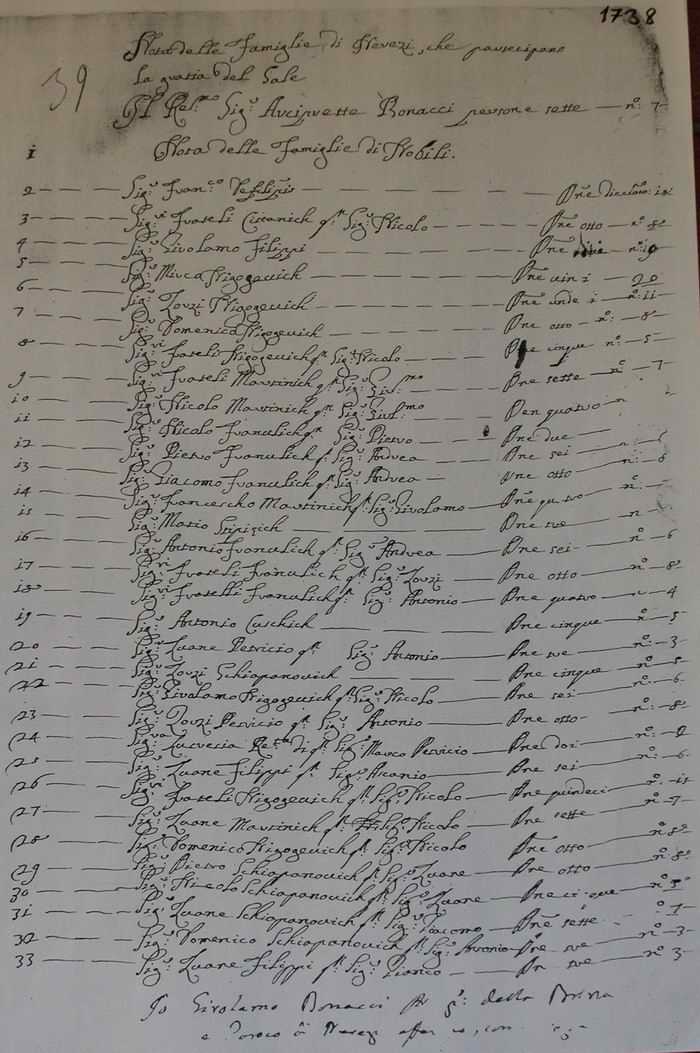 1738
39
Nota delle Famiglie di Neveri, che partecipano
la gratia del Sale
Il Rel.mo Sig.r Arciprette Bonacci persone sette — n.o 7
1 Nota delle Famiglie di Nobili.
2 — Sig.r Fran.co — Pne
3 — Sig.ri Frateli Cusanich q.m Sig.r Nicolo — Pne otto — n.o 8
4 — Sig.r Girolamo Filippi — Pne
5 — Sig.r Mirca Nigogevich — Pne vinti 20
6 — Sig.r Zorzi Nigogevich — Pne undeci n.o 11
7 — Sig.r Domenico Nigogevich — Pne otto — n.o — 8
8 — Sig.ri Frateli Nigogevich q.m Sig.r Nicolo — Pne cinque n.o — 5
9 — Sig.ri Frateli Martinich q.m Sig.r — Pne sette — n.o — 7
10 — Sig.r Nicolo Martinich q.m Sig.r — quatro n
11 — Sig.r Nicolo Franulich q.m Sig.r Pietro — Pne due
12 — Sig.r Pietro Franulich q.m Sig.r Andrea — Pne sei
13 — Sig.r Giacomo Franulich q.m Sig.r Andrea — Pne otto — n.o 8
14 — Sig.r Francescho Martinich q.m Sig.r Girolamo — Pne
15 — Sig.r Mario — Pne tre
16 — Sig.r Antonio Franulich q.m Sig.r Andrea — Pne sei — n.o — 6
17 — Sig.ri Frateli Franulich q.m Sig.r Zorzi — Pne otto — n.o — 8
18 — Sig.ri Fratelli Franulich q.m Sig.r Antonio — Pne quatro — 4
19 — Sig.r Antonio Cuschich — Pne cinque n.o — 5
20 — Sig.r Zuane Petricio q.m Sig.r Antonio — Pne tre — n.o — 3
21 — Sig.r Zorzi Schiapanovich — Pne cinque n.o 5
22 — Sig.r Girolamo Nigogevich q.m Sig.r Nicolo — Pne sei — n.o — 6
23 — Sig.r Zorzi Petricio q.m Sig.r Antonio — Pne otto — n.o — 8
24 — Sig.ra Lucretia Rel.ta di q.m Sig.r Marco Petricio — Pne doi — n.o — 2
25 — Sig.r Zuane Filippi q.m Sig.r — Pne sei — n.o — 6
26 — Sig.ri Frateli Nigogevich q.m Sig.r Nicolo — Pne quindeci — n.o 15
27 — Sig.r Zuane Martinich q.m Sig.r Nicolo — Pne sette — n.o — 7
28 — Sig.r Domenico Nigogevich q.m Sig.r Nicolo Pne otto — n.o 8
29 — Sig.r Pietro Schiapanovich q.m Sig.r Zuane — Pne otto — n.o 8
30 — Sig.r Nicolo Schiapanovich q.m Sig.r Zuane — Pne
31 — Sig.r Zuane Schiapanovich q.m Sig.r Giacomo — Pne sette — 7
32 — Sig.r Domenico Schiapanovich q.m Sig.r Antonio — Pne tre — n.o — 3
33 — Sig.r Zuane Filippi q.m Sig.r — tre — n.o 3
Io Girolamo Bonacci